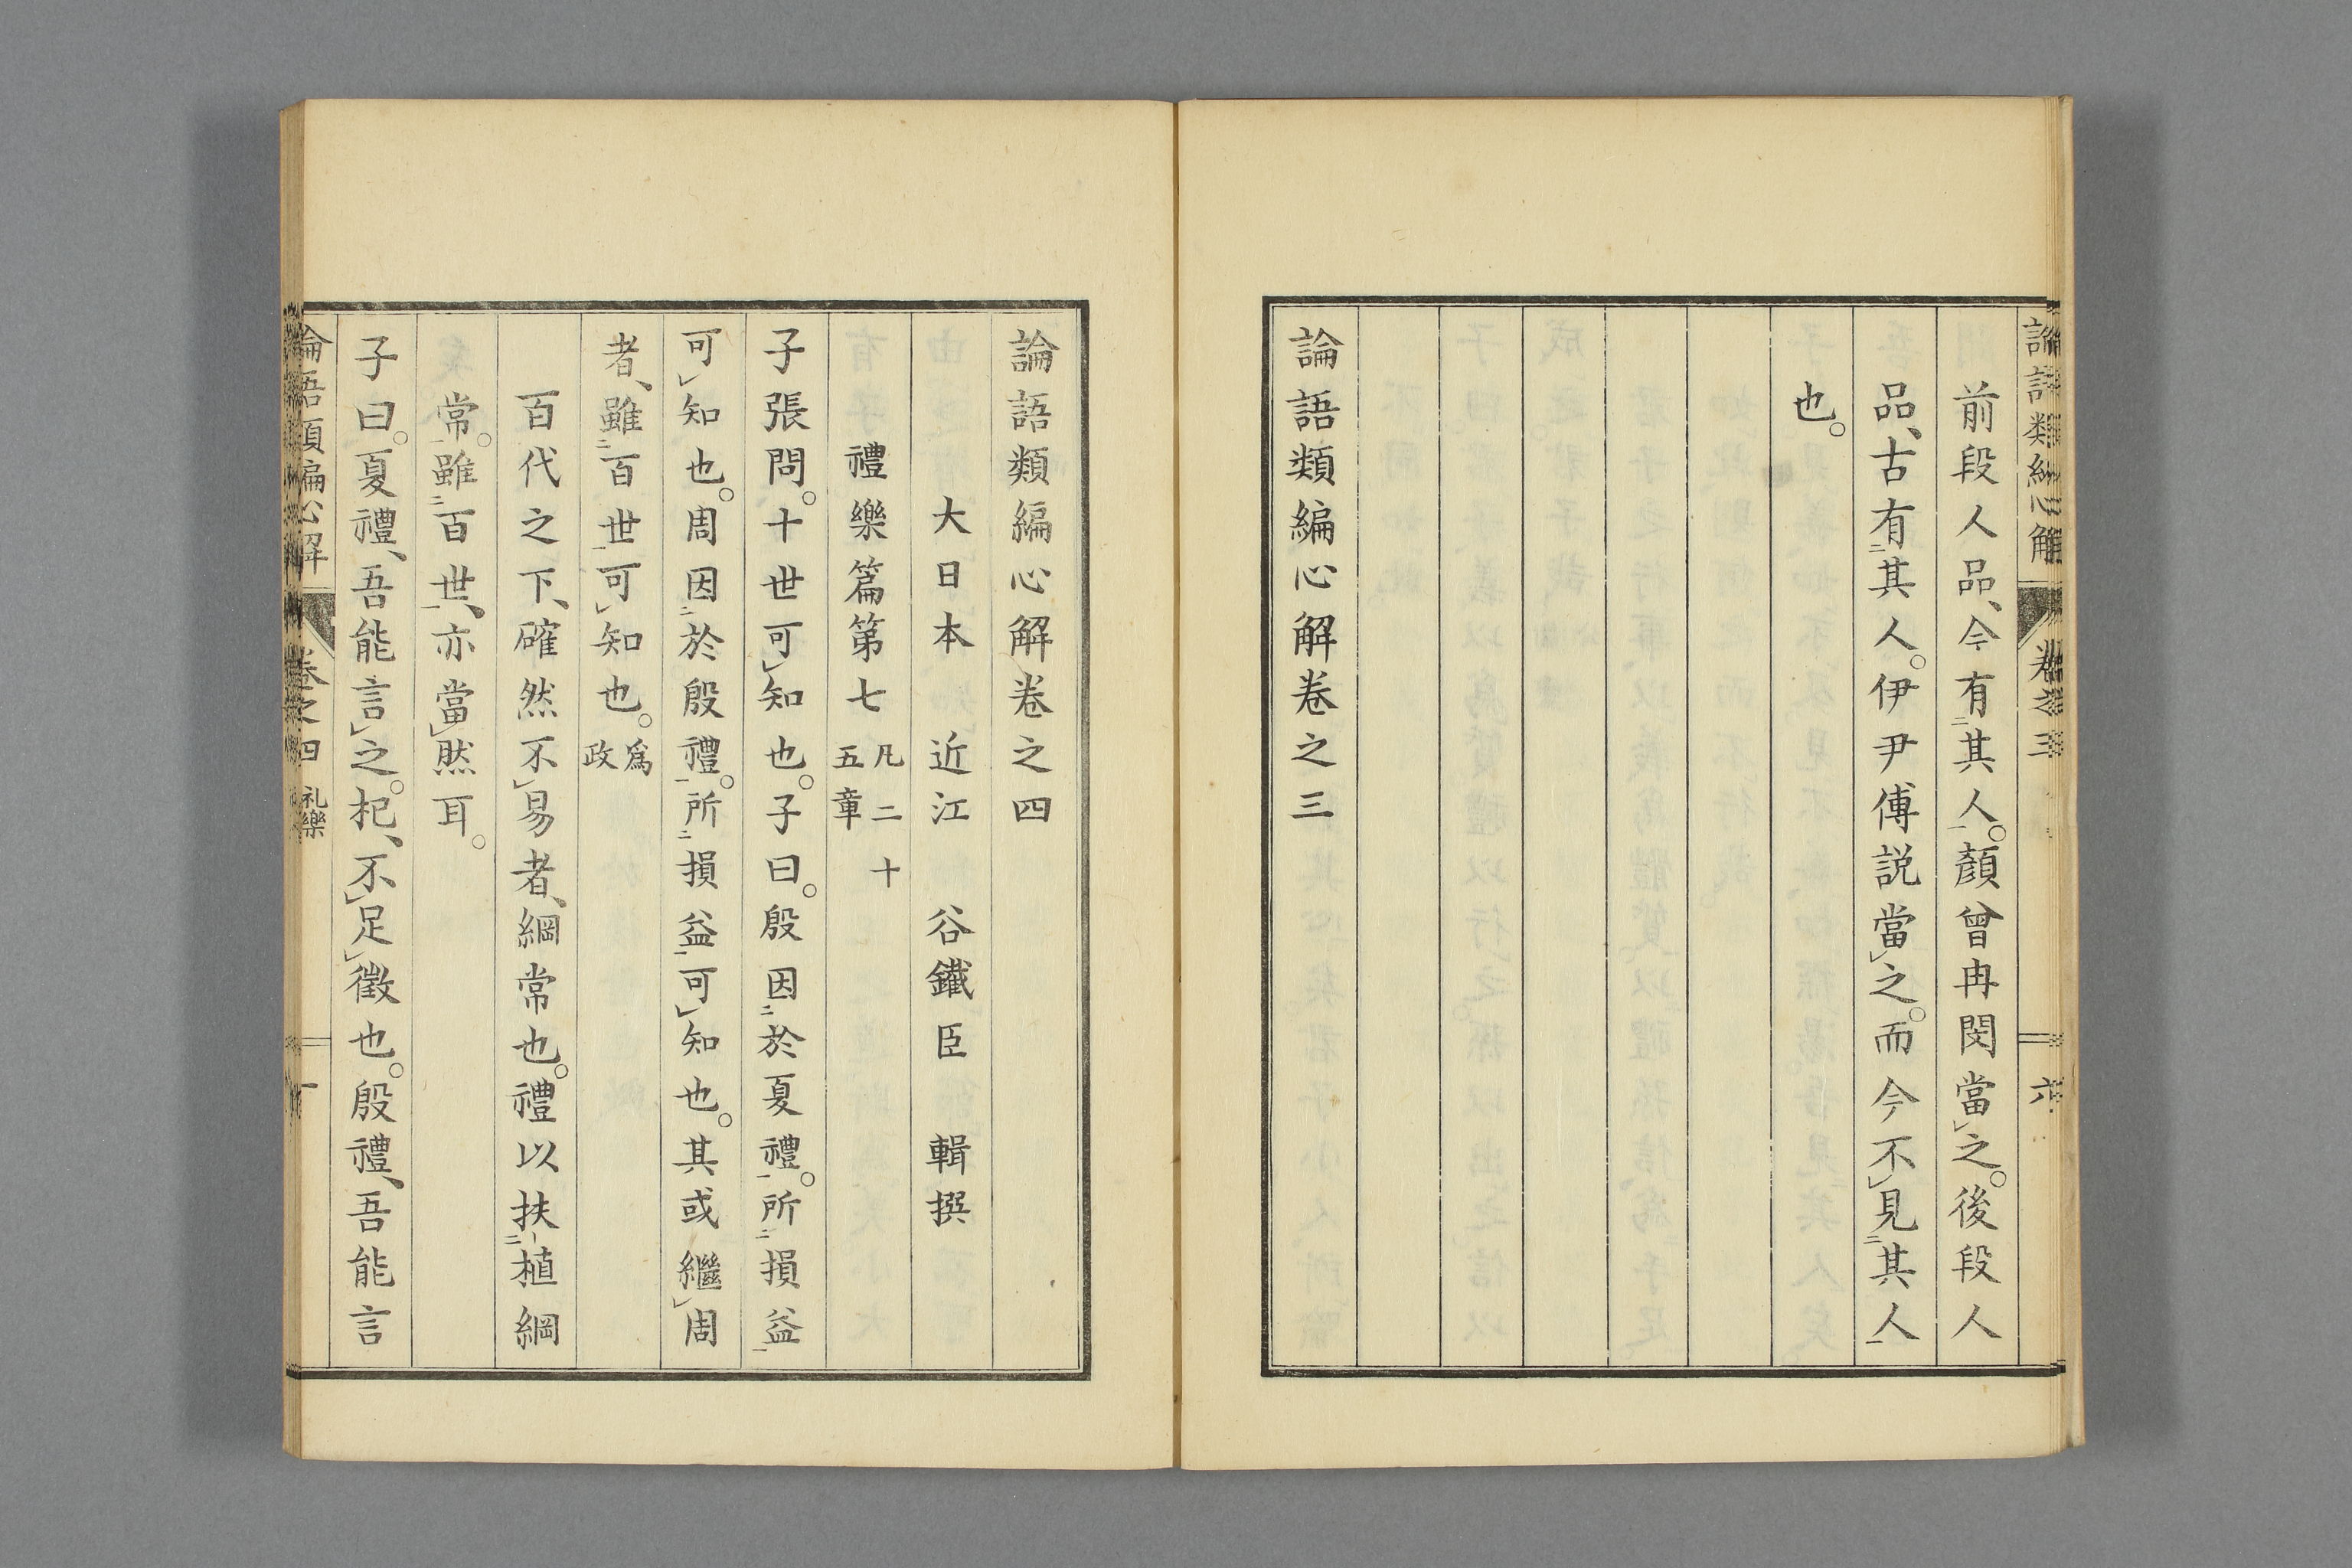 論語類編心解 卷之三 六
前段人品、今有二其人一。顏曾冉閔當レ之。後段人
品、古有二其人。伊尹傅説當レ之。而今不レ見二其人一
也。
論語類編心解卷之三
論語類編心解卷之四
大日本 近江 谷鐵臣 輯撰
禮樂篇第七 凡二十五章
子張問。十世可レ知也。子曰。殷因二於夏禮一。所二損益一
可レ知也。周因二於殷禮一。所二損益一可レ知也。其或繼レ周
者、雖二百世一可レ知也。爲政
百代之下、確然不レ易者、綱常也。禮以扶二植綱
常一。雖二百世一、亦當レ然耳。
子曰。夏禮、吾能言レ之。杞、不レ足レ徵也。殷禮、吾能言
論語類編心解 卷之四 礼樂 一